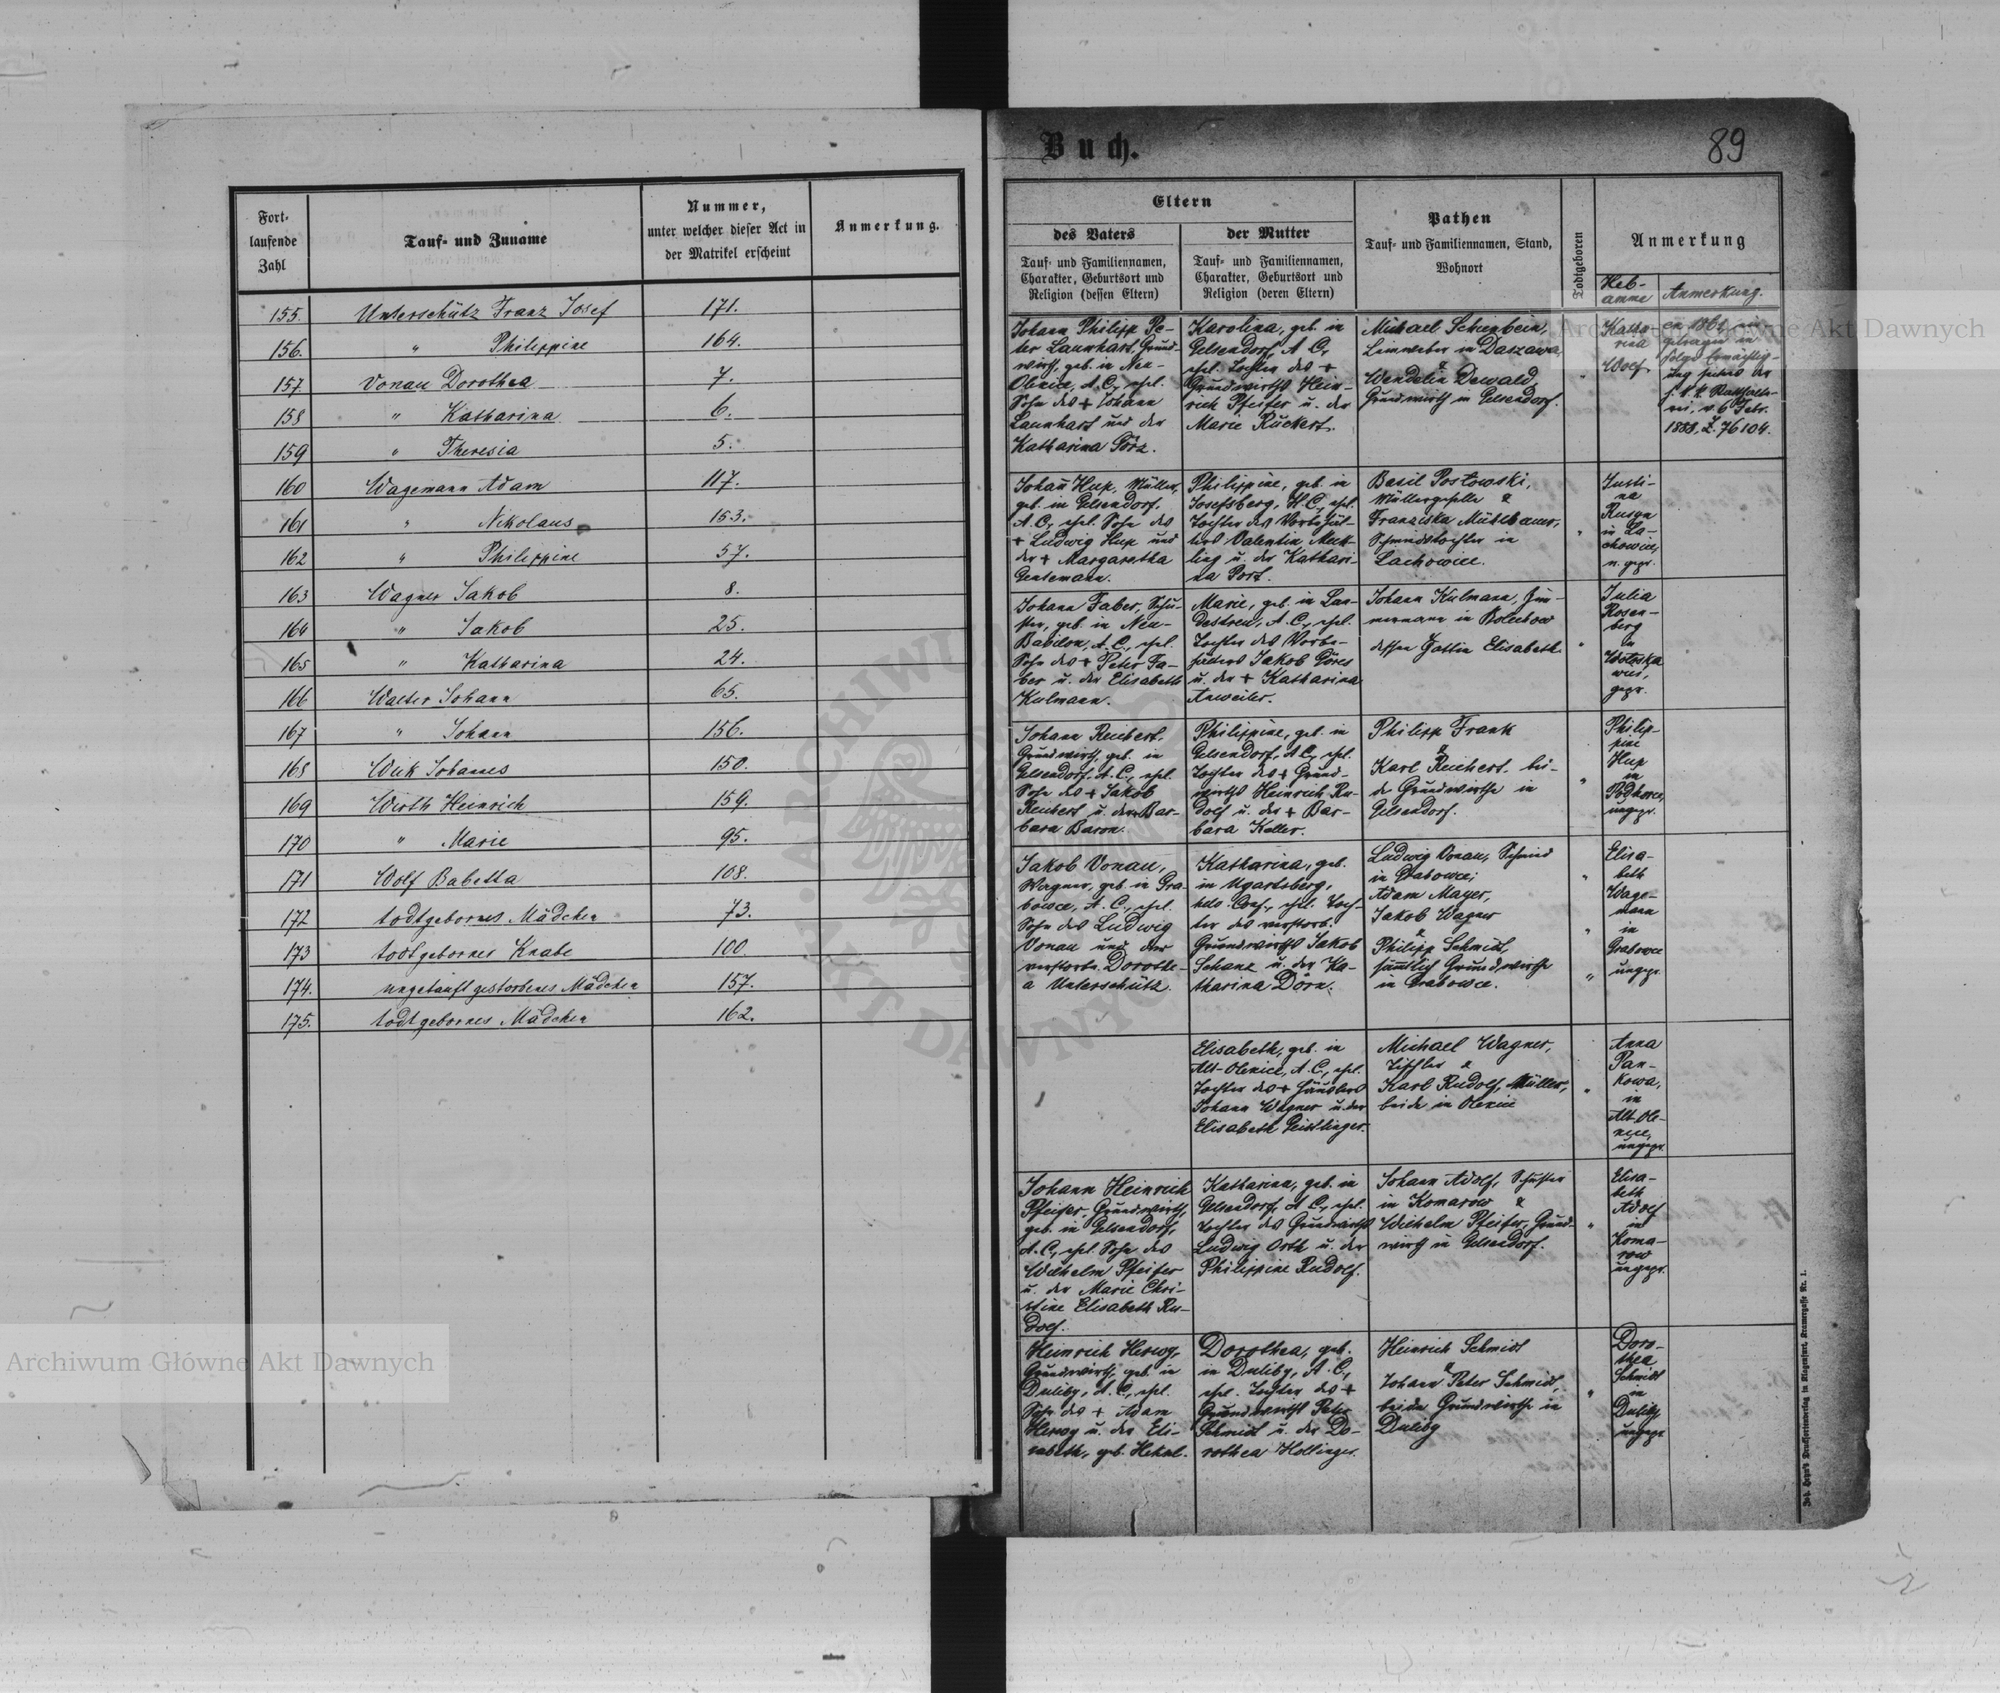 Fort-
laufende
Zahl
Tauf- und Zuname
Nummer,
unter welcher dieser Act in
der Matrikel erscheint
Anmerkung.
155. Unterschütz Franz Josef 171.
156. " Philippine 164.
157. Vonau Dorothea 7.
158 " Katharina 6.
159 " Theresia 5.
160 Wagemann Adam 117.
161 " Nikolaus 153.
162 " Philippine 57.
163 Wagner Jakob 8.
164 " Jakob 25.
165 " Katharina 24.
166 Walter Johann 65.
167 " Johann 156.
168 Weik Johannes 150.
169 Wirth Heinrich 159.
170 " Marie 95.
171 Wolf Babetta 108.
172 todtgebornes Mädchen 73.
173 todtgeborner Knabe 100.
174. ungetauft gestorbenes Mädchen 157.
175. todtgebornes Mädchen 162.
Buch.
89
Eltern
des Vaters
Tauf- und Familiennamen,
Charakter, Geburtsort und
Religion (dessen Eltern)
der Mutter
Tauf- und Familiennamen,
Charakter, Geburtsort und
Religion (deren Eltern)
Pathen
Tauf- und Familiennamen, Stand,
Wohnort
Todtgeboren
Anmerkung
Heb-
amme
Anmerkung.
Johann Philipp Pe-
ter Launhart, Grund-
wirth, geb. in Neu-
Olexice, A.C., ehel.
Sohn des + Johann
Launhart und der
Katharina Pörz.
Karolina, geb. in
Gelsendorf, A.C.,
ehel. Tochter des +
Grundwirths Hein-
rich Pfeifer u. der
Marie Rückert.
Michael Schienbein,
Leinweber in Daszawa,
&
Wendelin Dewald,
Grundwirth in Gelsendorf.
"
Katha-
rina
Wolf
getragen in
folge Ermächtig-
ung seitens der
k. k. Statthalte-
rei, v. 6 Febr.
1888, Z. 76104.
Johann Hup, Müller,
geb. in Gelsendorf,
A.C., ehel. Sohn des
+ Ludwig Hup und
der + Margaretha
Gensemann.
Philippine, geb. in
Josefsberg, H.C., ehel.
Tochter des
Valentin Mek-
ling u. der Kathari-
na Port.
Basil Postowski,
Müllergeselle &
Franziska Mühlbauer,
Schmidstochter in
Lachowice.
"
Justi-
na
Rusyn
in La-
chowice,
n. gepr.
Johann Faber, Schu-
ster, geb. in Neu-
Babilon, A.C., ehel.
Sohn des + Peter Fa-
ber u. der Elisabeth
Kulmann.
Marie, geb. in Lan-
destreu, A.C., ehel.
Tochter des
Jakob Göres
u. der + Katharina
Anweiler.
Johann Kulmann, Zim-
mermann in Bolechow
&
dessen Gattin Elisabeth.
"
Julia
Rosen-
berg
in
gepr.
Johann Reichert,
Grundwirth, geb. in
Gelsendorf, A.C., ehel.
Sohn des + Jakob
Reichert u. der Bar-
bara Baron.
Philippine, geb. in
Gelsendorf, A.C., ehel.
Tochter des + Grund-
wirths Heinrich Ru-
dolf u. der + Bar-
bara Keller.
Philipp Frank
&
Karl Reichert, bei-
de Grundwirthe in
Gelsendorf.
"
Philip-
pine
Hup
in
Podhorce,
ungepr.
Jakob Vonau,
Wagner, geb. in Gra-
bowce, A.C., ehel.
Sohn des Ludwig
Vonau und der
verstorb. Dorothe-
a Unterschütz.
Katharina, geb.
in Ugartsberg,
helv. Conf., ehel. Toch-
ter des verstorb.
Grundwirths Jakob
Schanz u. der Ka-
tharina Dörn.
Ludwig Vonau, Schmid
in Grabowce;
Adam Mayer,
Jakob Wagner
&
Philipp Schmidt,
sämmtlich Grundwirthe
in Grabowce.
"
"
"
Elisa-
beth
Wage-
mann
in
Grabowce
ungepr.
Elisabeth, geb. in
Alt-Olexice, A.C., ehel.
Tochter des + Häuslers
Johann Wagner u. der
Elisabeth Geistlinger.
Michael Wagner,
Tischler &
Karl Rudolf, Müller,
beide in Olexice
"
Anna
Pan-
kowa,
in
Alt-Ole-
xice,
ungepr.
Johann Heinrich
Pfeifer, Grundwirth,
geb. in Gelsendorf,
A.C., ehel. Sohn des
Wilhelm Pfeifer
u. der Marie Chri-
stine Elisabeth Ru-
dolf.
Katharina, geb. in
Gelsendorf, A.C., ehel.
Tochter des Grundwirths
Ludwig Orth u. der
Philippine Rudolf.
Johann Adolf, Schuster
in Komarow &
Wilhelm Pfeifer, Grund-
wirth in Gelsendorf.
"
Elisa-
beth
Adolf
in
Koma-
row
ungepr.
Heinrich Herzog,
Grundwirth, geb. in
Duliby, A.C., ehel.
Sohn des + Adam
Herzog u. der Eli-
sabeth, geb. Hekel.
Dorothea, geb.
in Duliby, A.C.,
ehel. Tochter des +
Grundwirths Peter
Schmidt u. der Do-
rothea Hollinger.
Heinrich Schmidt
&
Johann Peter Schmidt,
beide Grundwirthe in
Duliby
"
Doro-
thea
Schmidt
in
Duliby
ungepr.
Joh. Heyn's Drucksortenverlag in Klagenfurt, Kramergasse Nr. 1.
Archiwum Główne Akt Dawnych
Archiwum Główne Akt Dawnych
ARCHIWUM
AKT DAWNYCH